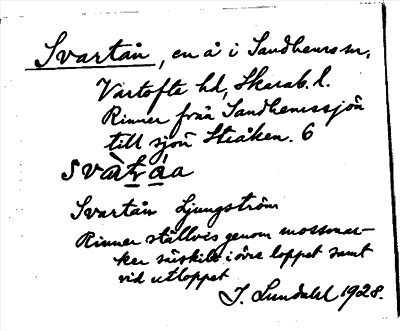 Svartån, en å i Sandhems sn,
Vartofta hd, Skarab. l.
Rinner från Sandhemssjön
till sjön Stråken. 6
svàtráa
Svartån Ljungström
Rinner ställvis genom mossmar-
ker särskilt i övre loppet samt
vid utloppet
J. Lundahl 1928.